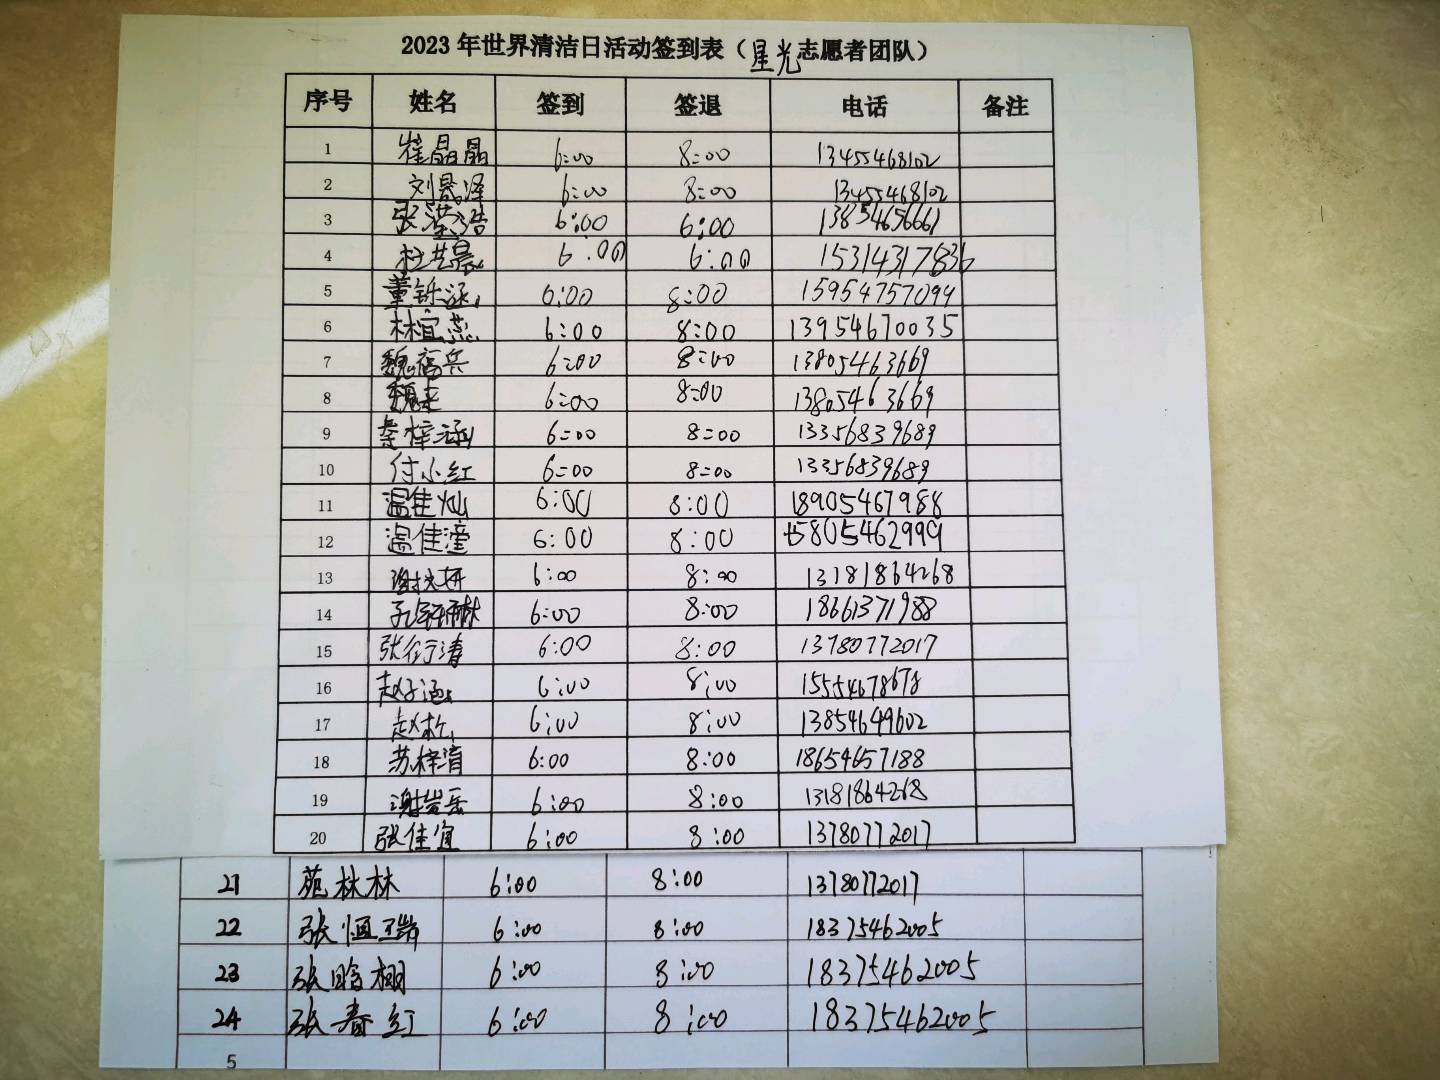 2023 年世界清洁日活动签到表（星光志愿者团队）
序号 姓名 签到 签退 电话 备注
1 崔晶晶 6:00 8:00 13455468102
2 刘晟泽 6:00 8:00 13455468102
3 张洪浩 6:00 6:00 13854656661
4 杜艺晨 6:00 6:00 15314317836
5 董铄涵 6:00 8:00 15954757099
6 林宜燕 6:00 8:00 13954670035
7 魏福兵 6:00 8:00 13805463669
8 魏来 6:00 8:00 13805463669
9 秦梓涵 6:00 8:00 13356839689
10 付小红 6:00 8:00 13356839689
11 温佳灿 6:00 8:00 18905467988
12 温佳潼 6:00 8:00 15805462999
13 6:00 8:00 13181864268
14 6:00 8:00 18661371988
15 张衍清 6:00 8:00 13780772017
16 赵子涵 6:00 8:00 15554678678
17 赵松 6:00 8:00 13854649602
18 苏梓清 6:00 8:00 18654657188
19 谢岩岳 6:00 8:00 13181864268
20 张佳宜 6:00 8:00 13780772017
21 苑林林 6:00 8:00 13780772017
22 张恒瑞 6:00 8:00 18375462005
23 张晗栩 6:00 8:00 18375462005
24 张春红 6:00 8:00 18375462005
5